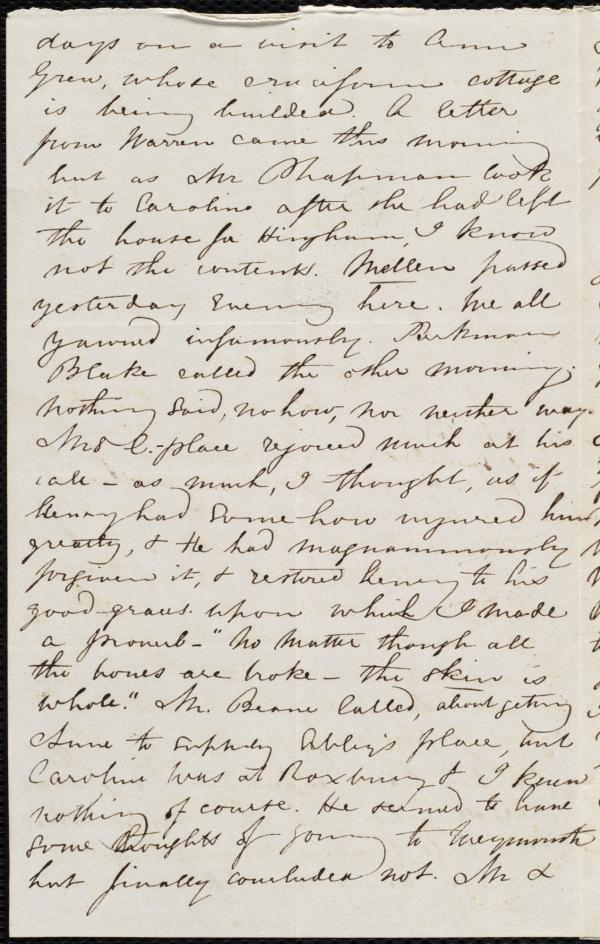 days on a visit to Ann
Grew, whose cruciform cottage
is being builded. A letter
from Warren came this morning
but as Mr Chapman took
it to Caroline after she had left
the house for Hingham, I know
not the contents. Mellen passed
yesterday evening here. We all
yawned infamously. Parkman
Blake called the other morning.
nothing said, no how, nor neither way.
Mrs C.-place rejoiced much at his
call - as much, I thought, as if
Henry had some how injured him
greatly, & He had magnanimously
forgiven it, & restored Henry to his
good graces. upon which I made
a proverb - "No matter though all
the bones are broke - the skin is
whole." Mr. Beane called, about getting
Anne to supply Abby's place, but
Caroline was at Roxbury & I knew
nothing of course. He seemed to have
some thoughts of going to Weymouth
but finally concluded not. Mr &